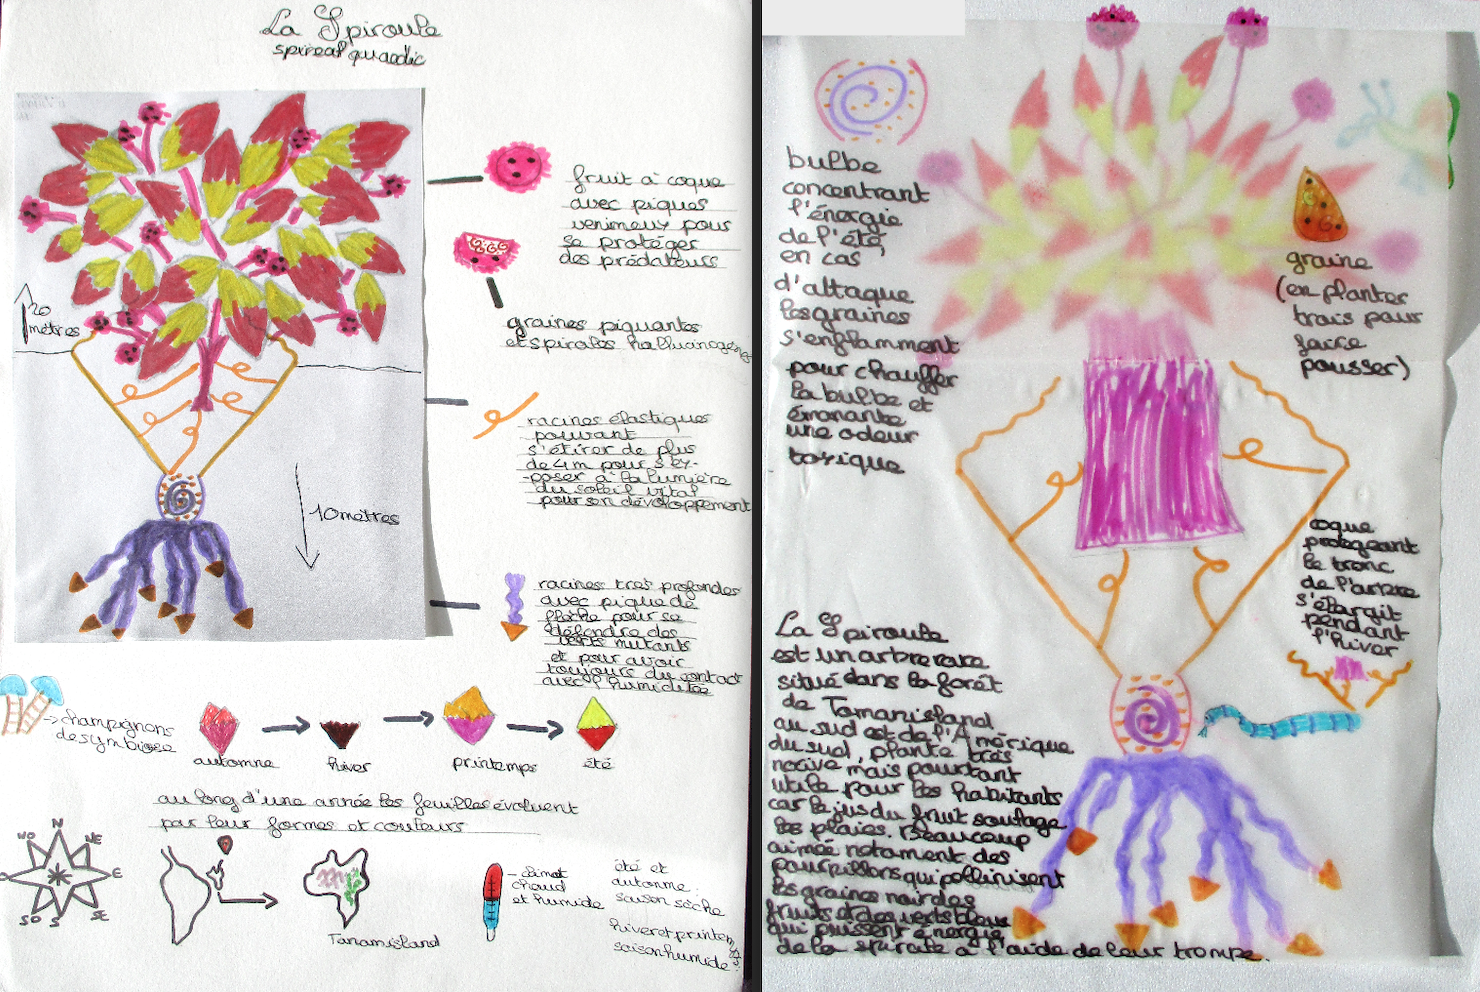 La Spiroule
spireaf quaedic
20
mètres
10 mètres
fruit à coque
avec piques
venimeux pour
se protéger
des prédateurs
graines piquantes
et spirales hallucinogènes
racines élastiques
pouvant
s'étirer de plus
de 4m pour s'ex-
-poser à la lumière
du soleil vital
pour son développement
racines très profondes
avec pique de
flèche pour se
défendre des
verts mutants
et pour avoir
toujours du contact
avec l'humiditée
champignons
de symbiose
automne
hiver
printemps
été
au long d'une année les feuilles évoluent
par leur formes et couleurs
N
NO
NE
O
E
SO
S
SE
Tanamisland
climat
chaud
et humide
été et
automne :
saison sèche
hiver et printemps
saison humide
bulbe
concentrant
l'énergie
de l'été
en cas
d'attaque
les graines
s'enflamment
pour chauffer
la bulbe et
émanante
une odeur
toxique
graine
(en planter
trois pour
faire
pousser)
coque
protegeant
le tronc
de l'arbre
s'élargit
pendant
l'hiver
La Spiroule
est un arbre rare
situé dans la forêt
de Tamanisland
au sud est de l'Amérique
du sud, plante très
nocive mais pourtant
utile pour les habitants
car le jus du fruit soulage
les plaies. Beaucoup
aimée notament des
pourpillons qui pollinisent
les graines noir des
fruits et des verts bleus
qui puissent énergie
de la spirale à l'aide de leur trompe.